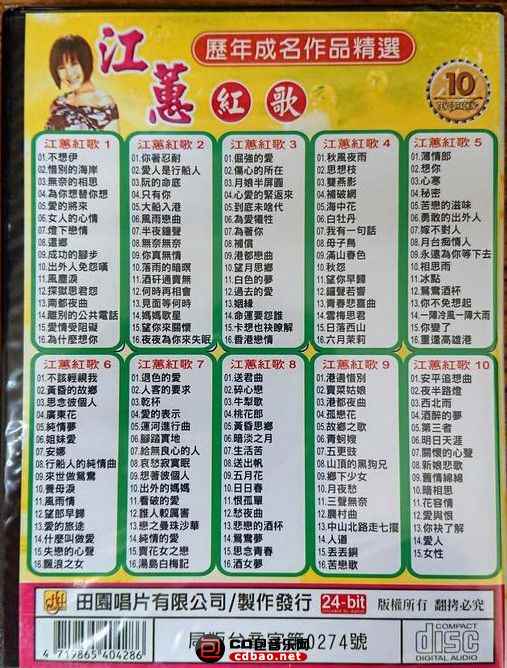 江蕙
歷年成名作品精選
紅歌
10
江蕙紅歌 1
01.不想伊
02.惜別的海岸
03.無奈的相思
04.為你想替你想
05.愛的將來
06.女人的心情
07.燈下戀情
08.還鄉
09.成功的腳步
10.出外人免怨嘆
11.風塵淚
12.探獄思君怨
13.南都夜曲
14.離別的公共電話
15.愛情受阻礙
16.為什麼想你
江蕙紅歌 2
01.你著忍耐
02.愛人是行船人
03.阮的命底
04.只有你
05.大船入港
06.風雨戀曲
07.半夜鐘聲
08.無奈無奈
09.你真無情
10.落雨的暗暝
11.酒矸通賣無
12.何時再相會
13.見面等何時
14.媽媽歌星
15.望你來關懷
16.夜夜為你來失眠
江蕙紅歌 3
01.倔強的愛
02.傷心的所在
03.月娘半屏圓
04.心愛的緊返來
05.到底未啥代
06.為愛犧牲
07.為著你
08.補償
09.港都戀曲
10.望月思鄉
11.白色的夢
12.過去的愛
13.姻緣
14.命運要怨誰
15.卡想也袂瞭解
16.香港戀情
江蕙紅歌 4
01.秋風夜雨
02.思想枝
03.雙燕影
04.補破網
05.海中花
06.白牡丹
07.我有一句話
08.母子鳥
09.滿山春色
10.秋怨
11.望你早歸
12.鑼聲若響
13.青春悲喜曲
14.雲梅思君
15.日落西山
16.六月茉莉
江蕙紅歌 5
01.薄情郎
02.想你
03.心寒
04.秘密
05.苦戀的滋味
06.勇敢的出外人
07.嫁不對人
08.月台痴情人
09.永遠為你等下去
10.相思雨
11.冰點
12.鴛鴦酒杯
13.你不免想起
14.一陣冷風一陣大雨
15.你變了
16.重逢高雄港
江蕙紅歌 6
01.不該輕視我
02.黃昏的故鄉
03.思念彼個人
04.廣東花
05.純情夢
06.姐妹愛
07.安娜
08.行船人的純情曲
09.來世做鴛鴦
10.養母淚
11.風雨情
12.望郎早歸
13.愛的旅途
14.什麼叫做愛
15.失戀的心聲
16.飄浪之女
江蕙紅歌 7
01.退色的愛
02.人客的要求
03.乾杯
04.愛的表示
05.運河進行曲
06.腳踏實地
07.給無良心的人
08.哀愁寂寞眠
09.想著彼個人
10.出外的媽媽
11.看破的愛
12.誰人較厲害
13.戀之曼珠沙華
14.純情的愛
15.賣花女之戀
16.湯島白梅記
江蕙紅歌 8
01.送君曲
02.碎心戀
03.牛犁歌
04.桃花郎
05.黃昏思鄉
06.暗淡之月
07.生活苦
08.送出帆
09.五月花
10.日日春
11.恨孤單
12.愁夜曲
13.悲戀的酒杯
14.鴛鴦夢
15.思念青春
16.酒女夢
江蕙紅歌 9
01.港邊惜別
02.賣菜姑娘
03.港都夜曲
04.孤戀花
05.故鄉之歌
06.青蚵嫂
07.五更鼓
08.山頂的黑狗兄
09.鄉下少女
10.月夜愁
11.三聲無奈
12.農村曲
13.中山北路走七擺
14.人道
15.丟丟銅
16.苦戀歌
江蕙紅歌 10
01.安平追想曲
02.夜半路燈
03.西北雨
04.酒醉的夢
05.第三者
06.明日天涯
07.關懷的心聲
08.新娘悲歌
09.舊情綿綿
10.暗相思
11.花容情
12.愛與恨
13.你袂了解
14.愛人
15.女性
田園唱片有限公司/製作發行
24-bit
版權所有 翻拷必究
4 719865 404286
局版台音字第0274號
COMPACT
disc
DIGITAL AUDIO
CD包音乐网
cdbao.net